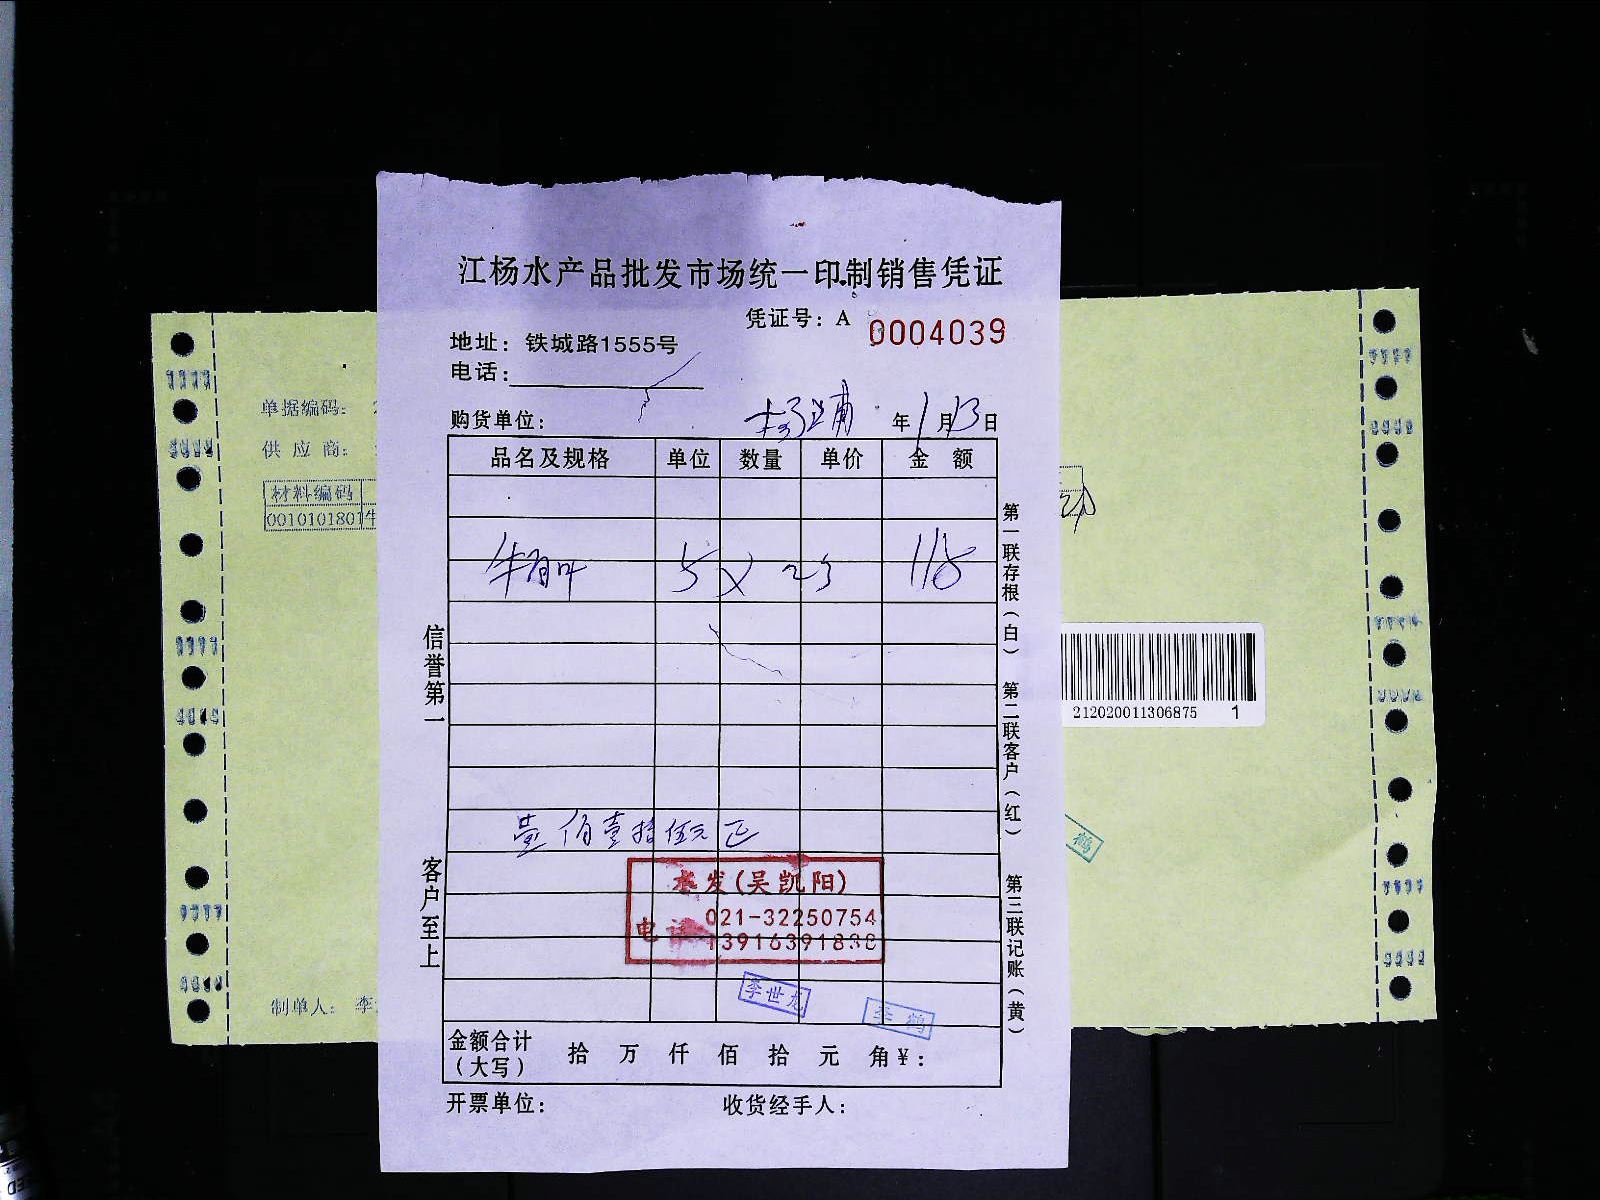 江杨水产品批发市场统一印制销售凭证
凭证号：A 0004039
地址：铁城路1555号
电话：
购货单位： 杨浦 年1月13日
品名及规格 单位 数量 单价 金额
5 X 23 115
壹佰壹拾伍元正
水发(吴凯阳)
电话 021-32250754
13916391838
李世龙
李鹤
金额合计（大写） 拾 万 仟 佰 拾 元 角 ￥：
开票单位： 收货经手人：
信誉第一
客户至上
第一联存根（白） 第二联客户（红） 第三联记账（黄）
单据编码：
供应商：
材料编码
0010101801牛
制单人： 李
212020011306875 1
鹤